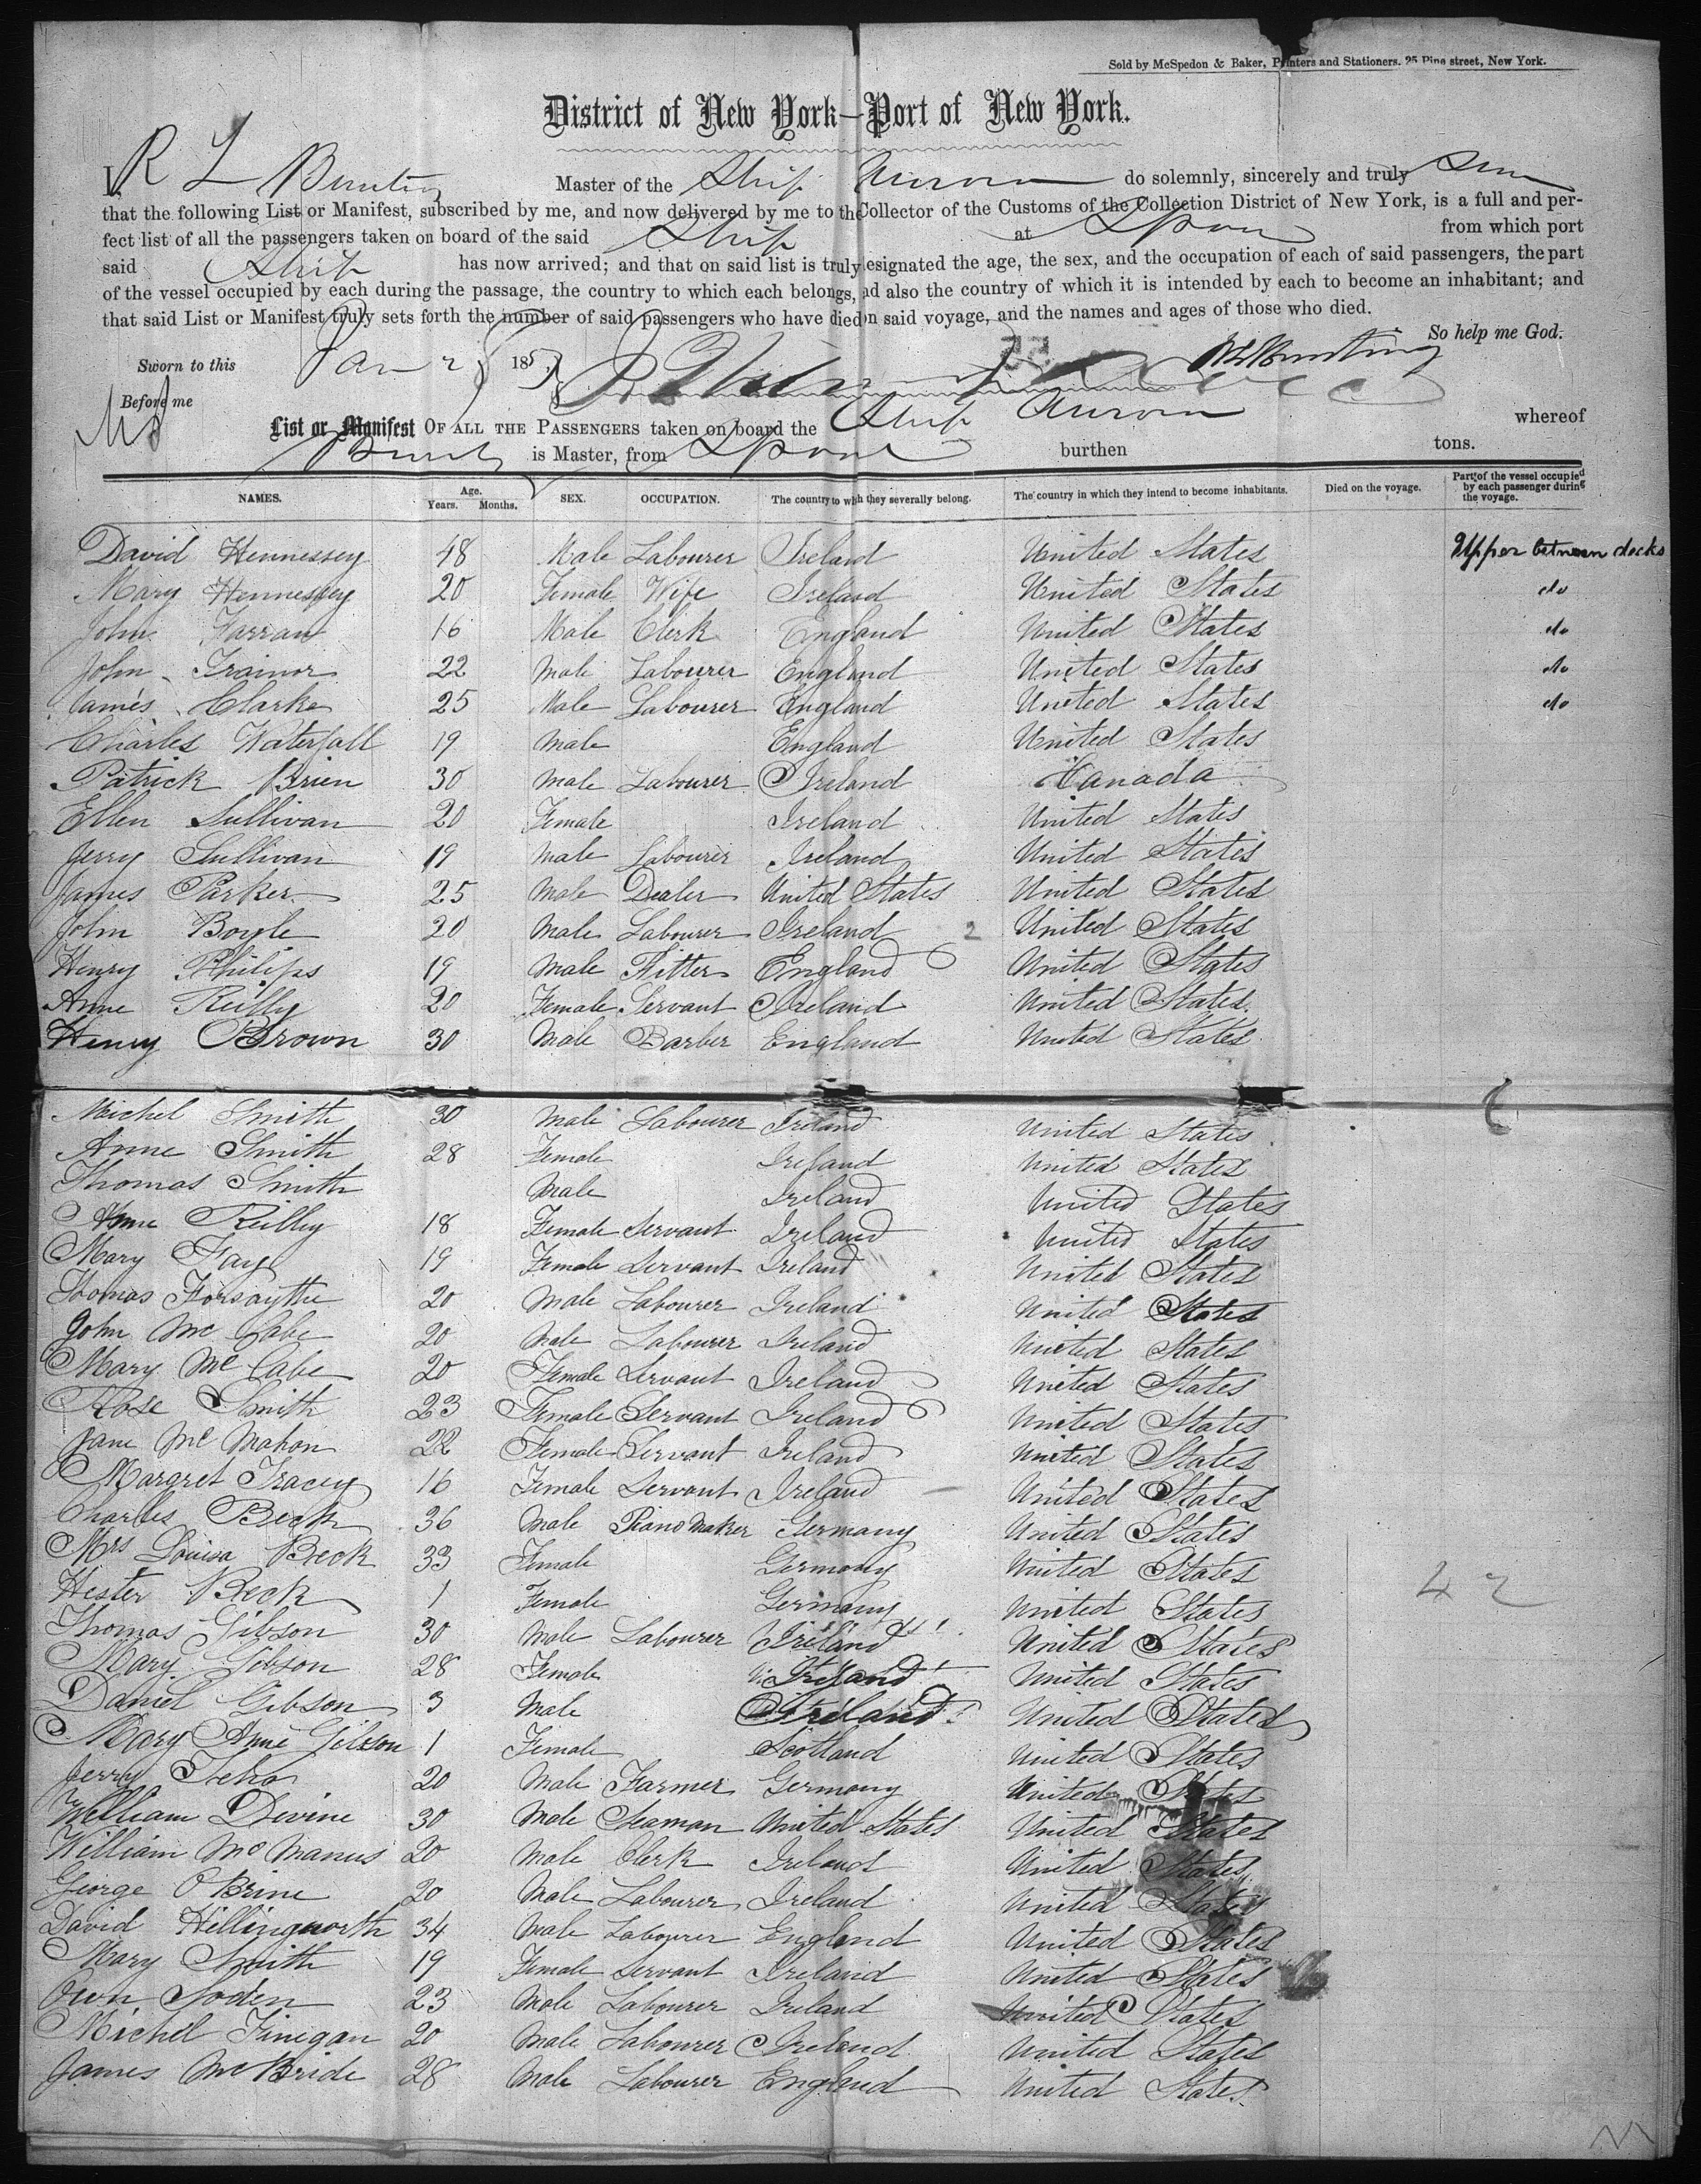 Sold by McSpedon & Baker, Printers and Stationers, 25 Pine street, New York.
District of New York—Port of New York.
I, R L Bunting Master of the Ship Aurora do solemnly, sincerely and truly
that the following List or Manifest, subscribed by me, and now delivered by me to the Collector of the Customs of the Collection District of New York, is a full and per-
fect list of all the passengers taken on board of the said Ship at Lpool from which port
said Ship has now arrived; and that on said list is truly designated the age, the sex, and the occupation of each of said passengers, the part
of the vessel occupied by each during the passage, the country to which each belongs, and also the country of which it is intended by each to become an inhabitant; and
that said List or Manifest truly sets forth the number of said passengers who have died on said voyage, and the names and ages of those who died.
So help me God.
Sworn to this Jan 2 185 R L Bunting
Before me
List or Manifest OF ALL THE PASSENGERS taken on board the Ship Aurora whereof
is Master, from Lpool burthen tons.
NAMES. Age. Years. Months. SEX. OCCUPATION. The country to which they severally belong. The country in which they intend to become inhabitants. Died on the voyage. Part of the vessel occupied by each passenger during the voyage.
David Hennessey 48 Male Labourer Ireland United States Upper between decks
Mary Hennessey 20 Female Wife Ireland United States do
John Farran 16 Male Clerk England United States do
John Trainor 22 Male Labourer England United States do
James Clarke 25 Male Labourer England United States do
Charles Waterfall 19 Male England United States
Patrick Brien 30 Male Labourer Ireland Canada
Ellen Sullivan 20 Female Ireland United States
Jerry Sullivan 19 Male Labourer Ireland United States
James Parker 25 Male Dealer United States United States
John Boyle 20 Male Labourer Ireland 2 United States
Henry Philips 19 Male Fitter England United States
Anne Reilly 20 Female Servant Ireland United States
Henry Brown 30 Male Barber England United States
Michel Smith 30 Male Labourer Ireland United States
Anne Smith 28 Female Ireland United States
Thomas Smith Male Ireland United States
Anne Reilly 18 Female Servant Ireland United States
Mary Fay 19 Female Servant Ireland United States
Thomas Forsaythe 20 Male Labourer Ireland United States
John McCabe 20 Male Labourer Ireland United States
Mary McCabe 20 Female Servant Ireland United States
Rose Smith 23 Female Servant Ireland United States
Jane McMahon 22 Female Servant Ireland United States
Margret Tracey 16 Female Servant Ireland United States
Charles Beck 36 Male Piano Maker Germany United States
Mrs Louisa Beck 33 Female Germany United States
Hester Beck 1 Female Germany United States 42
Thomas Gibson 30 Male Labourer Ireland United States
Mary Gibson 28 Female Ireland United States
Daniel Gibson 3 Male Ireland United States
Mary Anne Gibson 1 Female Scotland United States
Jerry 20 Male Farmer Germany United States
William Devine 30 Male Seaman United States United States
William McManus 20 Male Clerk Ireland United States
George O Brine 20 Male Labourer Ireland United States
David Hillingworth 34 Male Labourer England United States
Mary Smith 19 Female Servant Ireland United States
Own Soden 23 Male Labourer Ireland United States
Michel Finegan 20 Male Labourer Ireland United States
James McBride 28 Male Labourer England United States